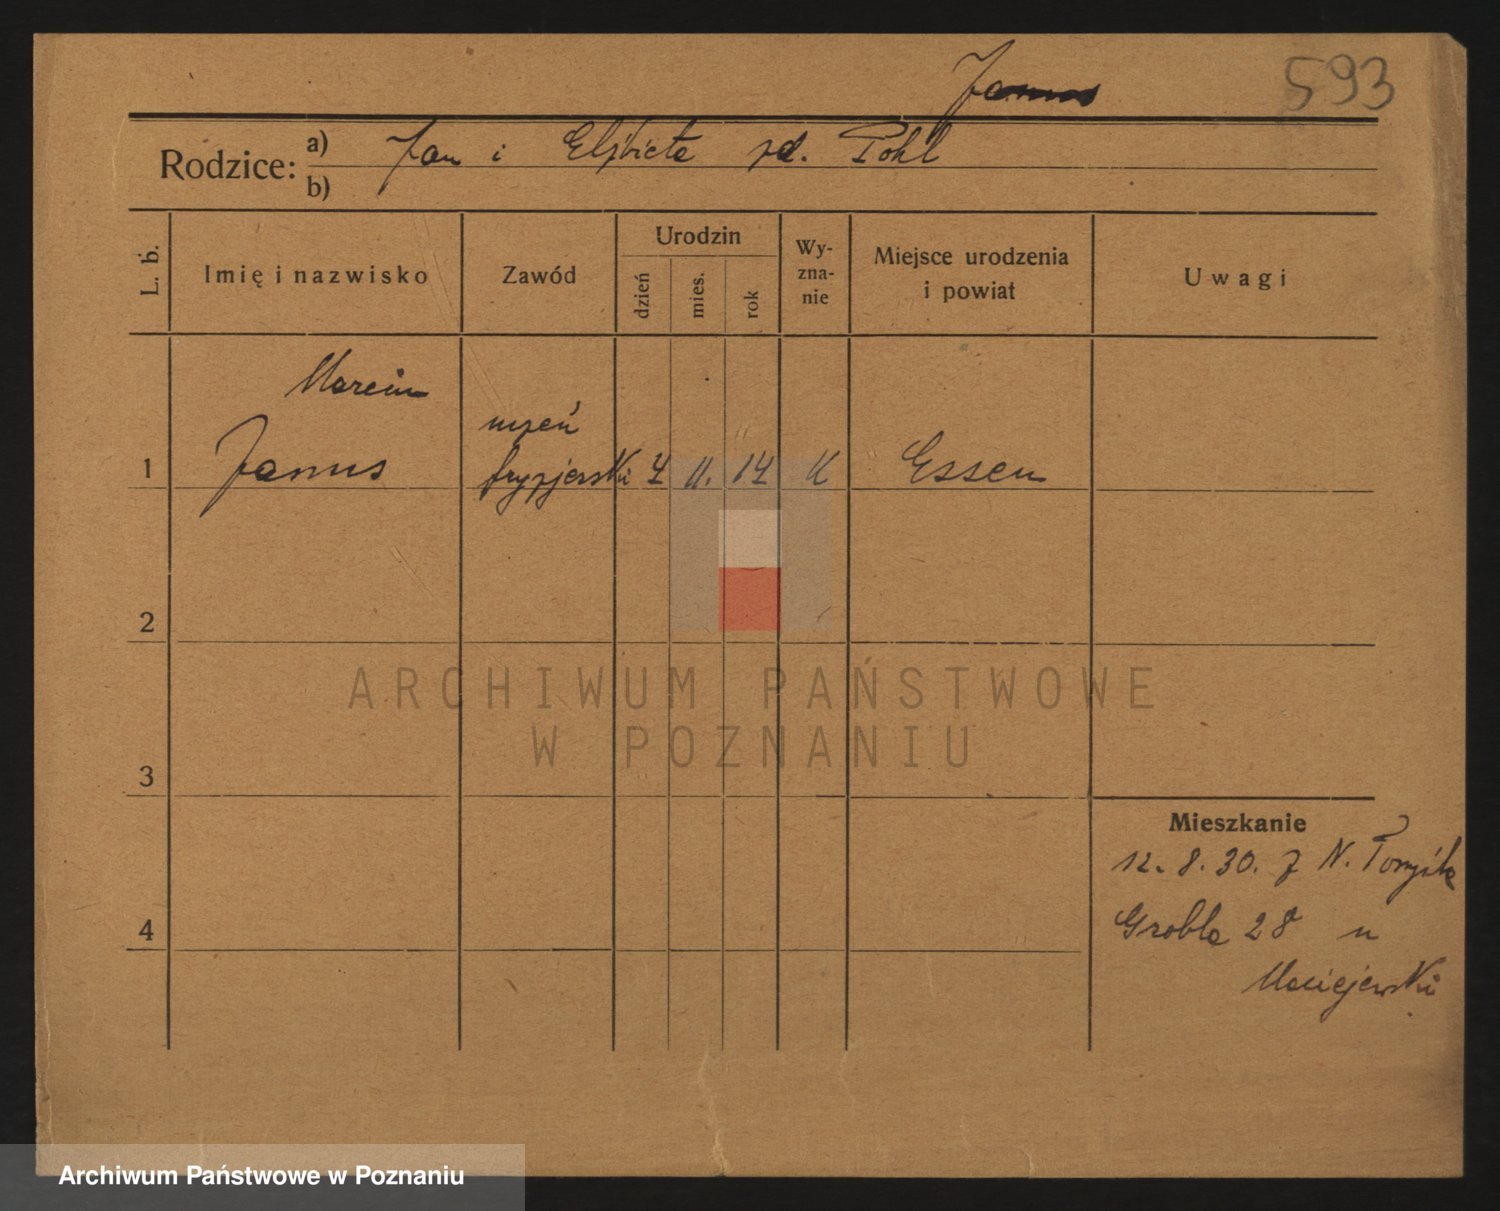 Janus
593
Rodzice: a) Jan i Elżbieta zd. Pohl
b)
L. b.
Imię i nazwisko
Zawód
Urodzin
dzień
mies.
rok
Wy-
zna-
nie
Miejsce urodzenia
i powiat
Uwagi
Marcin
uczeń
1 Janus fryzjerski 4 11. 14 K Essen
2
3
4
Mieszkanie
12. 8. 30. z N.
Grobla 28 u
Maciejewski
ARCHIWUM PAŃSTWOWE
W POZNANIU
Archiwum Państwowe w Poznaniu